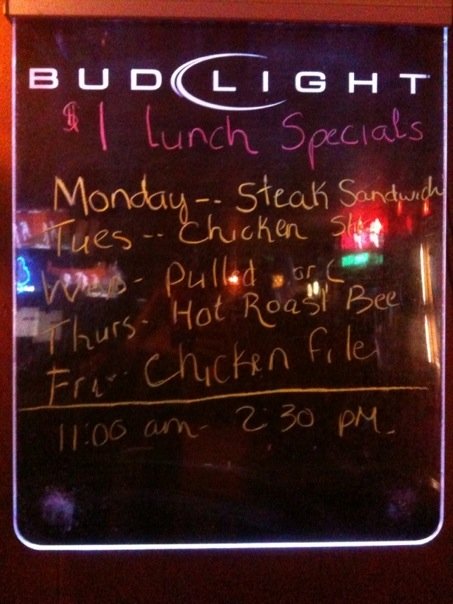 BUD LIGHT
$1 Lunch Specials
Monday -- Steak Sandwich
Tues -- Chicken
Wed - Pulled
Thurs - Hot Roast Bee
Fri -- Chicken File
11:00 am - 2:30 PM